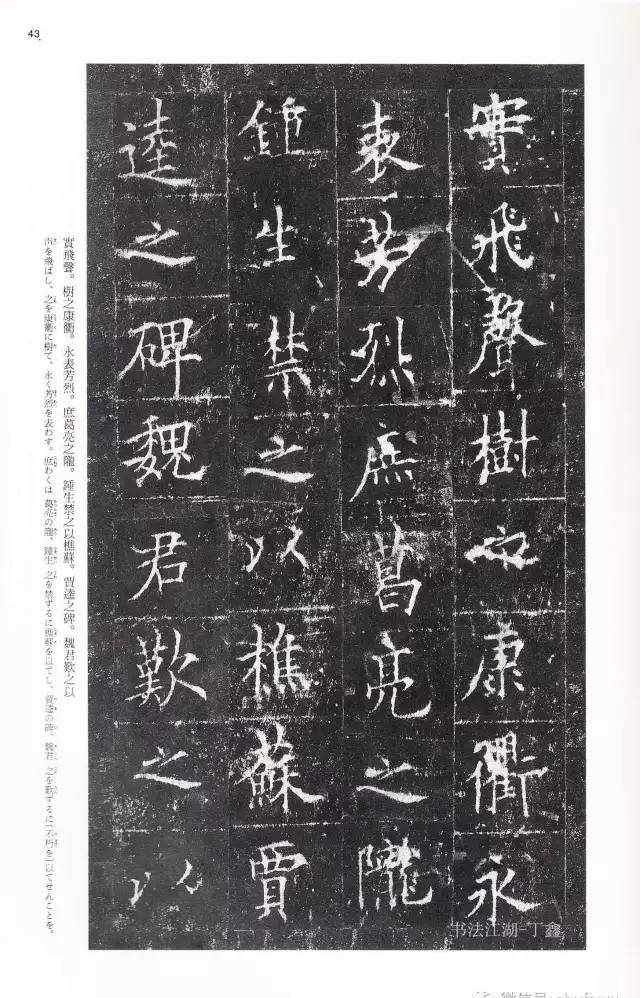 43
實飛聲樹之康衢永
表芳烈庶葛亮之隴
鍾生禁之以樵蘇賈
逵之碑魏君歎之以
實飛聲。樹之康衢。永表芳烈。庶葛亮之隴。鍾生禁之以樵蘇。賈逵之碑。魏君歎之以
声を飛ばし、之を康衢に樹て、永く芳烈を表わす。庶わくは葛亮の隴、鍾生之を禁ずるに樵蘇を以てし、賈逵の碑、魏君之を歎ずるに(不朽を)以てせんことを。
书法江湖-丁鑫